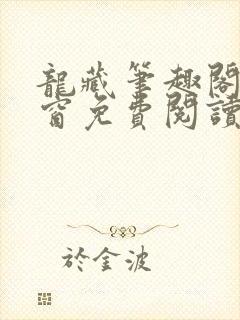 龍藏筆趣閣
窗免費閱讀
於金波